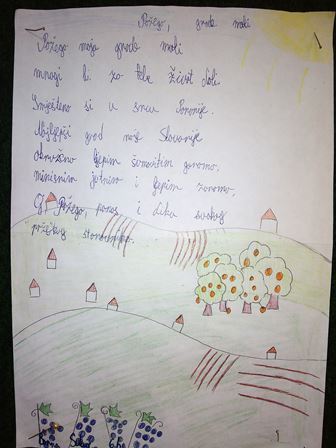 Požego, grade mali
Požego moja grade mali
mnogi bi za tebe život dali.
Smješteno si u srcu Panonije.
Najljepši grad naše Slavonije
okružено lijepim šumovitim goroma,
mirisnim jutrim i lijepim zorama.
O, Požego, ponos i dika svakog
požeškog stanovnika.